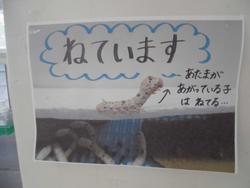 ねています
あたまが
あがっている子
は ねてる…